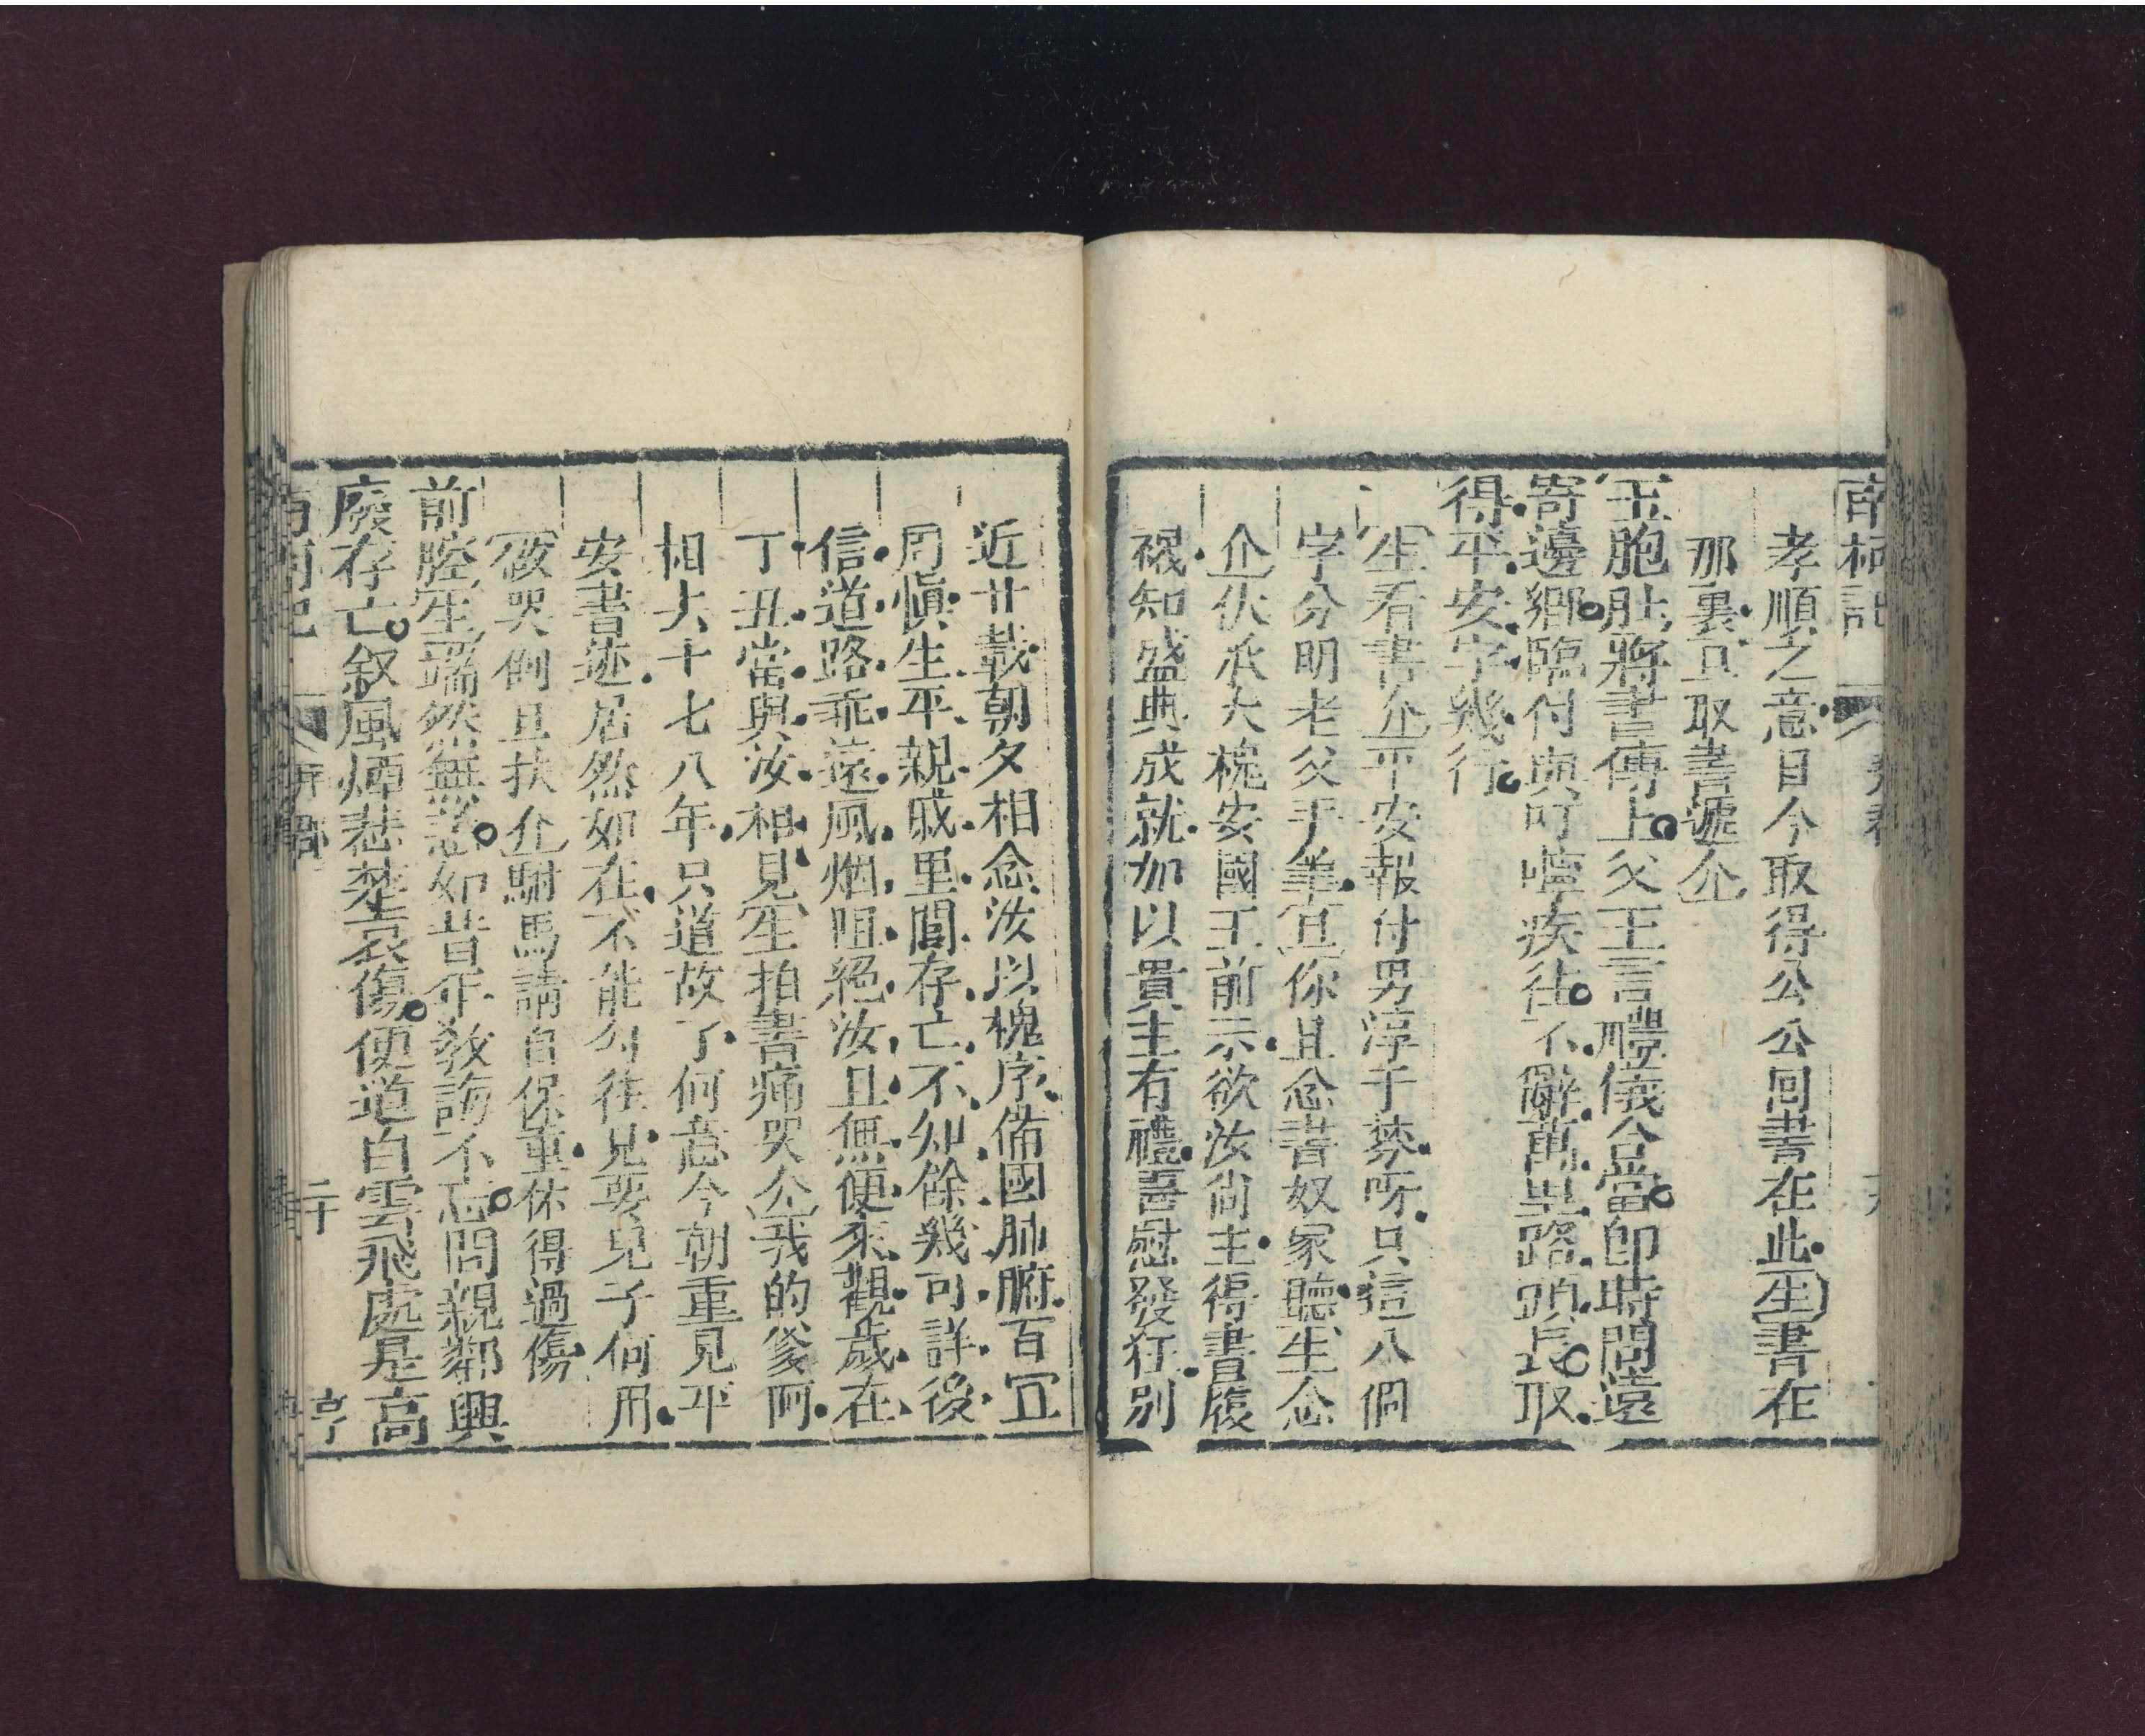 南柯記
孝順之意目今取得公公回書在此生書在
那裏旦取書遞介
玉胞肚將書傳上父王言禮儀合當即時間遠
寄邊鄉臨付與叮嚀疾往不辭萬里路頭長取
得平安字幾行
生看書介平安報付男淳于棼呀只這八個
字分明老父手筆旦你且念書奴家聽生念
介伏承大槐安國王前示欲汝尚主得書履
襪知盛典成就加以貴主有禮喜慰發狂別
近廿載朝夕相念汝以槐序備國肺腑百宜
周愼生平親戚里閭存亡不知餘幾可詳後
信道路乖遠風烟阻絕汝且無便來觀歲在
丁丑當與汝相見生拍書痛哭介我的爹阿
相去十七八年只道故了何意今朝重見平
安書迹居然如在不能勾往見要兒子何用
做哭倒旦扶介駙馬請自保重休得過傷
前腔生端然無恙如昔年教誨不忘問親鄰興
廢存亡叙風煙悲楚哀傷便道白雲飛處是高
二十 亨